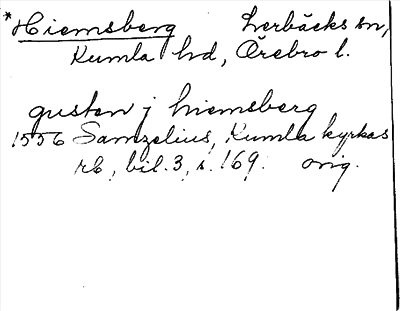 *Hiemsberg Lerbäcks sn,
Kumla hd, Örebro l.
gusten j hiemsberg
1556 Samzelius, Kumla kyrkas
rb, bil. 3, s. 169. orig.